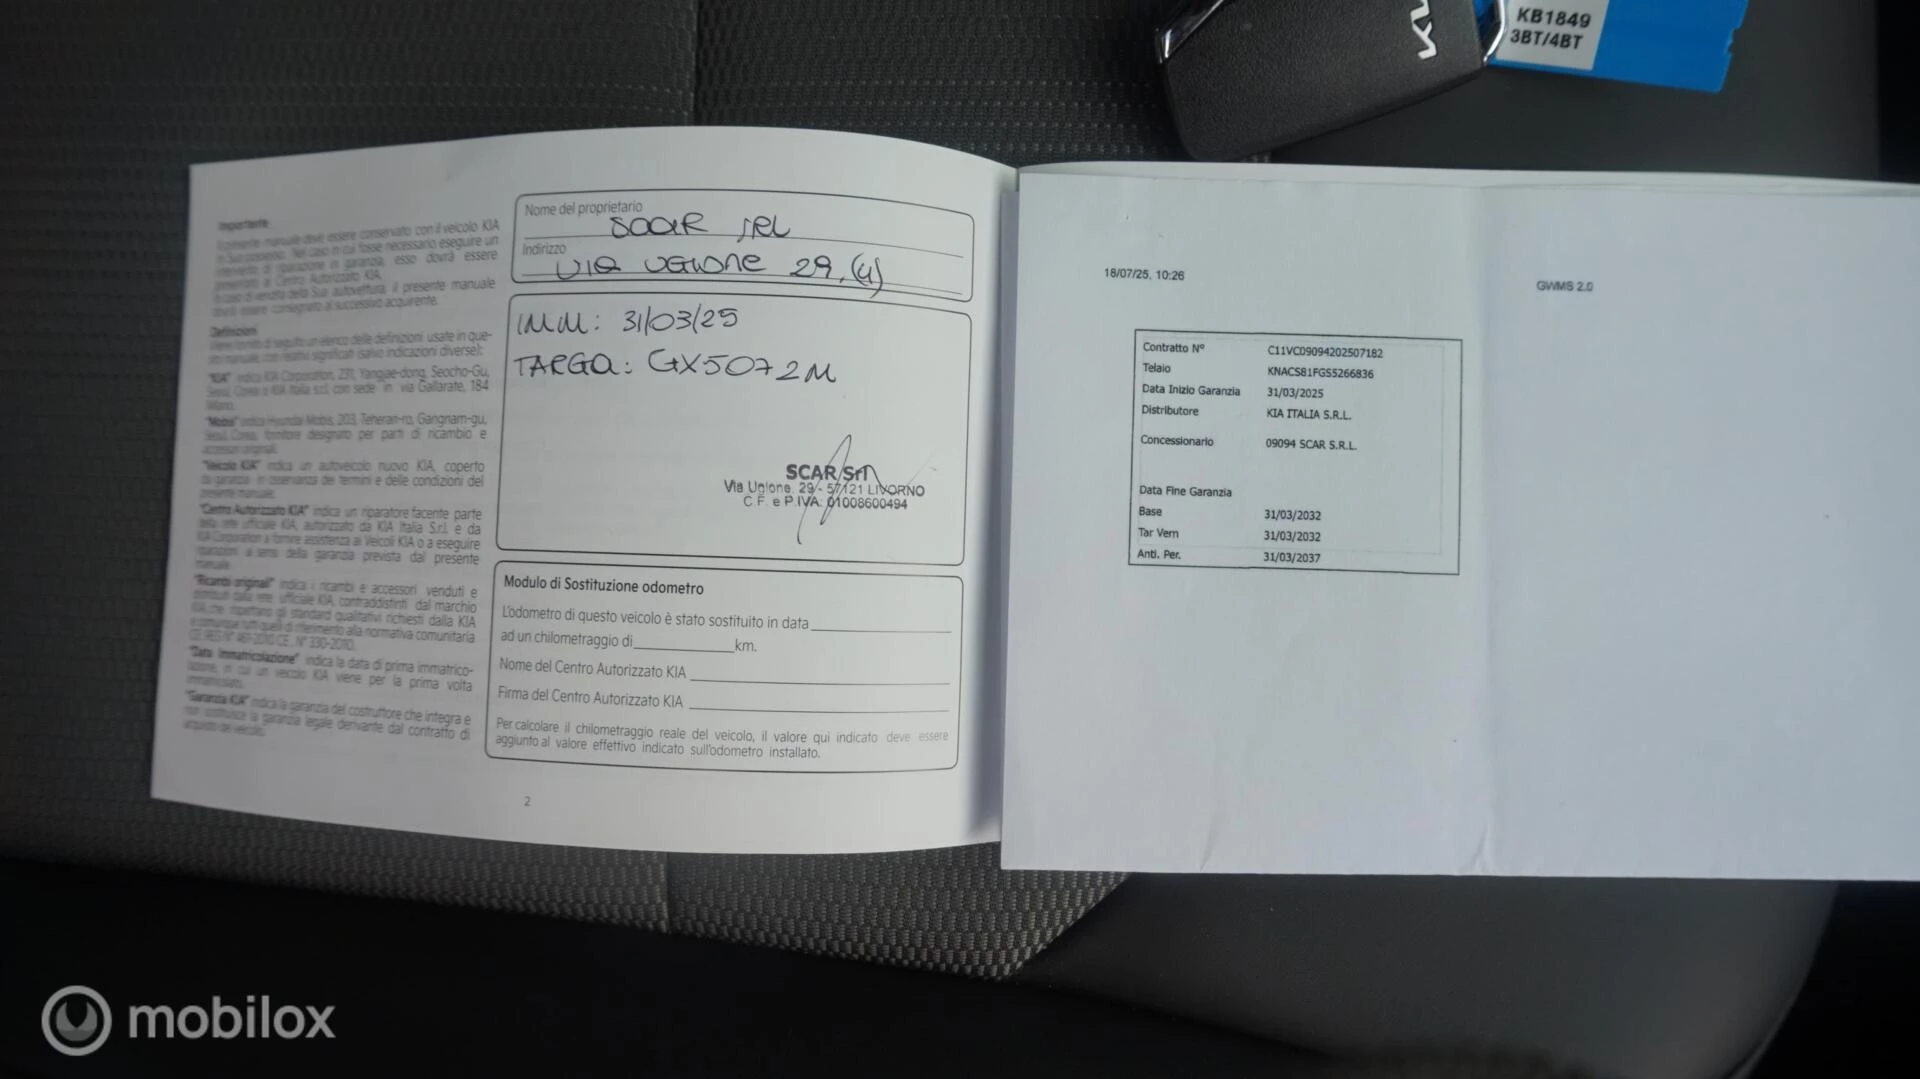 KB1849
3BT/4BT
Importante
Il presente manuale deve essere conservato con il veicolo KIA
in Suo possesso. Nel caso in cui fosse necessario eseguire un
intervento di riparazione in garanzia, esso dovrà essere
presentato al Centro Autorizzato KIA.
In caso di vendita della Sua autovettura, il presente manuale
dovrà essere consegnato al successivo acquirente.
Definizioni
Viene fornito di seguito un elenco delle definizioni usate in que-
sto manuale, con relativi significati (salvo indicazioni diverse):
"KIA" indica KIA Corporation, 231, Yangjae-dong, Seocho-Gu,
Seoul, Corea o KIA Italia s.r.l. con sede in via Gallarate, 184
Milano.
"Mobis" indica Hyundai Mobis, 203, Teheran-ro, Gangnam-gu,
Seoul, Corea, fornitore designato per parti di ricambio e
accessori originali.
"Veicolo KIA" indica un autoveicolo nuovo KIA, coperto
da garanzia in osservanza dei termini e delle condizioni del
presente manuale.
"Centro Autorizzato KIA" indica un riparatore facente parte
della rete ufficiale KIA, autorizzato da KIA Italia S.r.l. e da
KIA Corporation a fornire assistenza ai Veicoli KIA o a eseguire
riparazioni ai sensi della garanzia prevista dal presente
manuale.
"Ricambi originali" indica i ricambi e accessori venduti e
distribuiti dalla rete ufficiale KIA, contraddistinti dal marchio
KIA che rispettano gli standard qualitativi richiesti dalla KIA
e comunque tutti quelli di riferimento alla normativa comunitaria
CE REG N° 461-2010 CE, N° 330-2010.
"Data Immatricolazione" indica la data di prima immatrico-
lazione, in cui un veicolo KIA viene per la prima volta
immatricolato.
"Garanzia KIA" indica la garanzia del costruttore che integra e
non sostituisce la garanzia legale derivante dal contratto di
acquisto del veicolo.
Nome del proprietario
SCAR SRL
Indirizzo
VIA UGIONE 29, (LI)
IMM: 31/03/25
TARGA: GX507ZM
SCAR Srl
Via Ugione, 29 - 57121 LIVORNO
C.F. e P.IVA: 01008600494
Modulo di Sostituzione odometro
L'odometro di questo veicolo è stato sostituito in data
ad un chilometraggio di km.
Nome del Centro Autorizzato KIA
Firma del Centro Autorizzato KIA
Per calcolare il chilometraggio reale del veicolo, il valore qui indicato deve essere
aggiunto al valore effettivo indicato sull'odometro installato.
2
18/07/25, 10:26
GWMS 2.0
Contratto N° C11VC09094202507182
Telaio KNACS81FGS5266836
Data Inizio Garanzia 31/03/2025
Distributore KIA ITALIA S.R.L.
Concessionario 09094 SCAR S.R.L.
Data Fine Garanzia
Base 31/03/2032
Tar Vern 31/03/2032
Anti. Per. 31/03/2037
mobilox